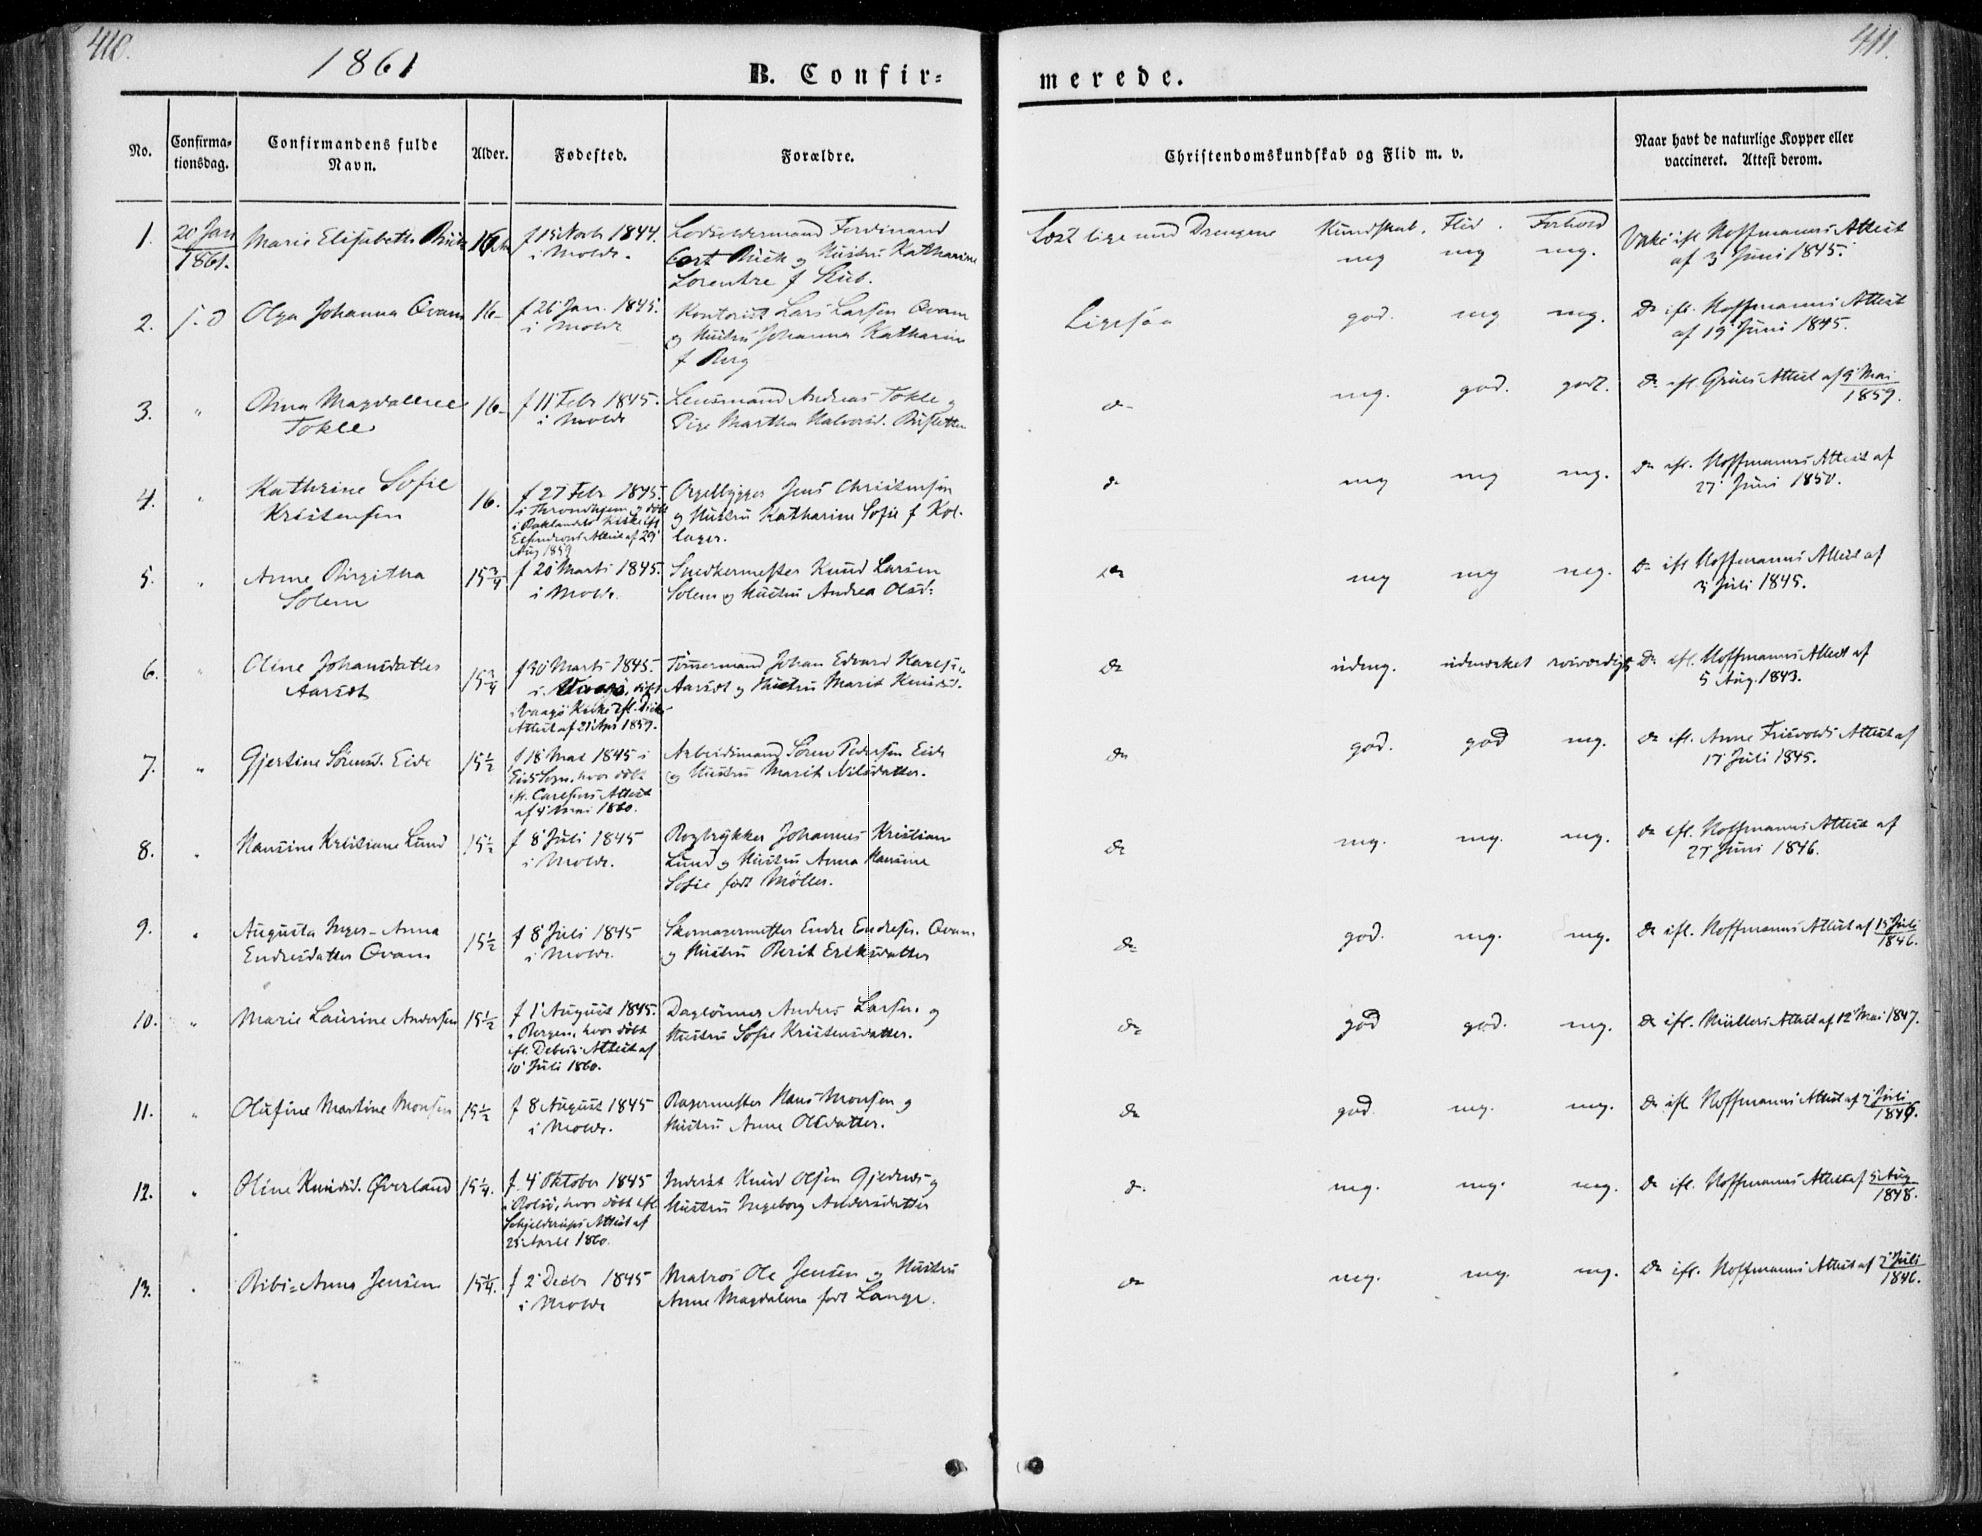 410.
1861
B. Confir=
merede.
411.
No.
Confirma-
tionsdag.
Confirmandens fulde
Navn.
Alder.
Fødested.
Forældre.
Christendomskundskab og Flid m. v.
Naar havt de naturlige Kopper eller
vaccineret. Attest derom.
1. 20 Jan 1861. Marie Elisabeth 16 f 15 Novb 1844.
i Molde.
Ferdinand
og Hustru Katharine
f
Læst lige med Drengene Kundskab. Flid. Forhold
mg mg mg.
Vakc ifl. Hoffmanns Attest
af 3 Juni 1845.
2. s. d Olga Johanna Qvam 16- f 26 Jan. 1845.
i Molde
Kontorist Lars Larsen Qvam
og Hustru Johanna Katharine
f Berg
Ligesaa god. mg mg.
do ifl. Hoffmanns Attest
af 19 Juni 1845.
3. " Magdalene
Tokle
16- f 11 Febr 1845.
i Molde
Lensmand Andreas Tokle og
Pige Martha Halvorsd.
do mg. god. godt.
do ifl. Attest af 9 Mai
1859.
4. " Kathrine Sofie
Kristensen
16. f 27 Febr 1845.
i Throndhjem og døbt
i Baklandets Kirke ifl
Attest af 29
Aug 1859
Orgelbygger Jens Christensen
og Hustru Katharine Sofie f
do mg mg mg.
do ifl. Hoffmanns Attest af
27 Juni 1850.
5. " Anne Birgitha
Solem
15 3/4 f 20 Marts 1845.
i Molde.
Snedkermester Knud Larsen
Solem og Hustru Andrea Olsd:
do mg mg mg.
do ifl Hoffmanns Attest af
3 Juli 1845.
6. " Oline Johansdatter
Aarsæt
15 3/4 f 30 Marts 1845.
i Vaagø, døbt
i Vaagø Kirke ifl.
Attest af 21 1859.
Tømmermand Johan Edvard
Aarsæt og Hustru Marit Knudsd.
do udmg. udmærket
do ifl. Hoffmanns Attest af
5 Aug. 1843.
7. " Gjertine Sørensd. Eide 15 1/2 f 18 Mai 1845 i
Eids Sogn, hvor døbt
ifl. Carlsens Attest
af 4 Mai 1860.
Arbeidsmand Søren Pedersen Eide
og Hustru Marit Nilsdatter.
do god. god mg.
do ifl. Anne Frisvolds Attest af
17 Juli 1845.
8. " Hansine Kristiane Lund 15 1/2 f 8 Juli 1845
i Molde.
Bogtrykker Johannes Kristian
Lund og Hustru Anna Hansine
Sofie født Møller.
do mg. mg. mg.
do ifl. Hoffmanns Attest af
27 Juni 1846.
9. " Augusta Inger-Anna
Endresdatter Qvam
15 1/2 f 8 Juli 1845
i Molde.
Skomagermester Endre Endresen Qvam
og Hustru Berit Eriksdatter
do god. mg. mg.
do ifl. Hoffmanns Attest af 15 Juli
1846.
10. " Marie Laurine Andersen 15 1/2 f 1 August 1845.
i Bergen, hvor døbt
ifl. Attest af
10 Juli 1860.
Daglønner Anders Larsen og
Hustru Sofie Kristensdatter.
do god god. mg.
do ifl. Müllers Attest af 12 Mai 1847.
11. " Olufine Martine Monsen 15 1/2 f 8 August 1845
i Molde.
Bagermester Hans Monsen og
Hustru Anne Olsdatter.
do god. mg. mg.
do ifl Hoffmanns Attest af Juli
12. " Oline Knudsd. Øverland 15 1/4. f. 4 Oktober 1845
i Bolsø, hvor døbt ifl.
Schjelderups Attest af
25 April 1860.
Inderst Knud Olsen og
Hustru Ingeborg Andersdatter
do mg. mg. mg.
do ifl. Hoffmanns Attest af 5 Aug
1848.
13. " Bibi=Anna Jensen 15 1/4. f 2 Decbr 1845
i Molde
Matros Ole Jensen og Hustru
Anne Magdalena født Lange.
do mg. mg. mg.
do ifl. Hoffmanns Attest af 2 Juli
1846.